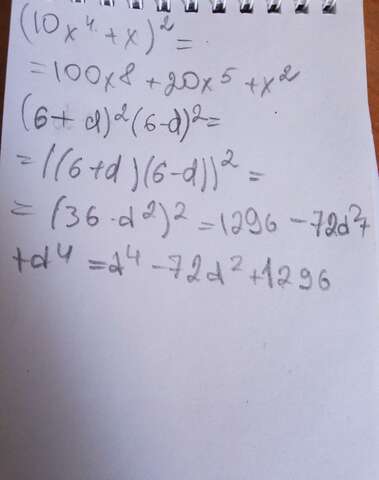 (10x⁴+x)²=
=100x8+20x⁵+x²
(6+d)²(6-d)²=
=((6+d)(6-d))²=
=(36-d²)²=1296-72d²+
+d⁴=d⁴-72d²+1296